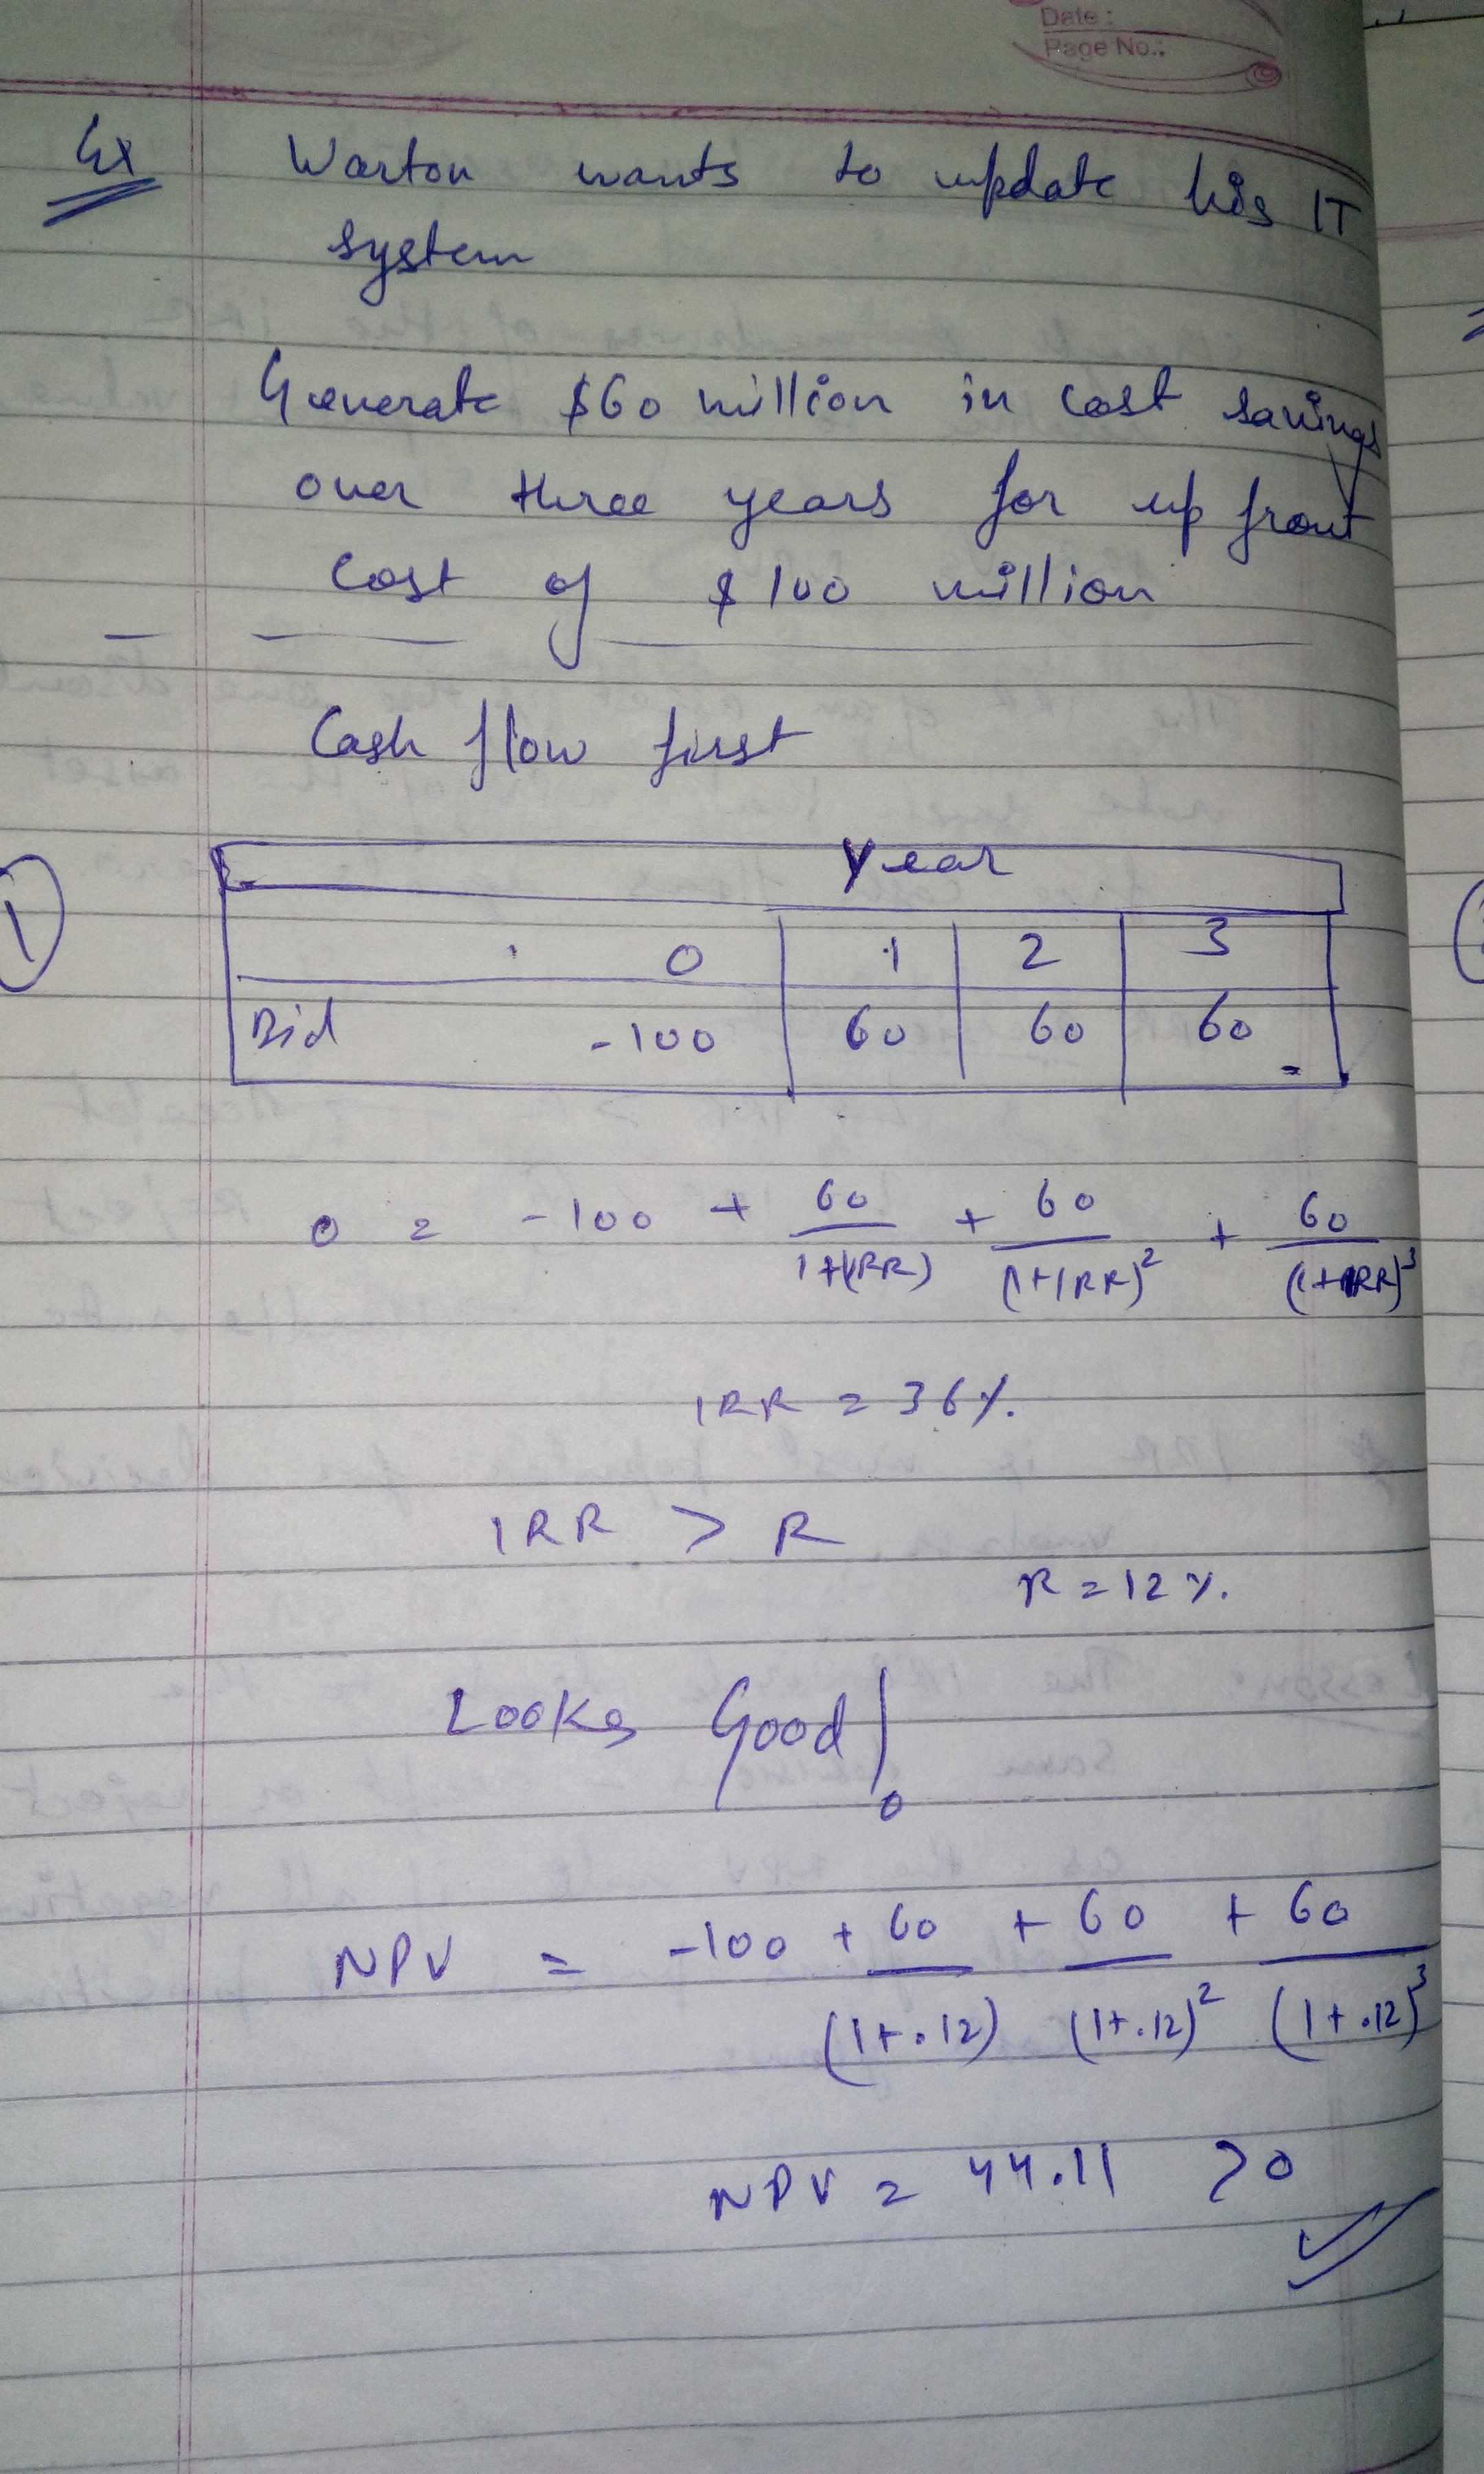 Date :
Page No.:
Ex Warton wants to update his IT
system
Generate $60 million in cost savings
over three years for up front
cost of $100 million
Cash flow first
1
Year
0 1 2 3
Bid -100 60 60 60
0 = -100 + 60/1+(IRR) + 60/(1+IRR)² + 60/(1+IRR)³
IRR = 36%.
IRR > R
R = 12%.
Looks Good!
NPV = -100 + 60/(1+.12) + 60/(1+.12)² + 60/(1+.12)³
NPV = 44.11 >0